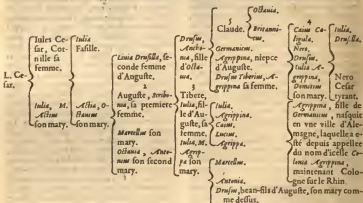 L. Ce-
sar.
Iules Ce-
sar, Cor-
nille sa
femme.
Iulia, M.
Actius
son mary.
Iulia
Fasille.
Actia, O-
ctauius
son mary.
Liuia Drusilla, se-
conde femme
d'Auguste.
2
Auguste, Scribo-
nia, sa premiere
femme.
Marcellus son
mary.
Octauia, Anto-
nius son second
mary.
Drusus,
Antho-
nia, fille
d'Octa-
uia.
3
Tibere,
Iulia, fil-
le d'Au-
guste, sa
femme.
Iulia, M.
Agrip-
pa son
mary.
Octauia,
5
Claude.
Britanni-
cus.
Germanicus.
Agrippine, niepce
d'Auguste.
Drusus Tiberius, A-
grippina sa femme.
Iulia,
Agrippa.
Caius,
Lucius,
Agrippa.
Marcellus.
Antonia.
Drusus, beau-fils d'Auguste, son mary com-
me dessus.
4
Caius Ca-
ligula,
Nero,
Drusus,
Iulia A-
grippina,
Domitius
son mary.
Iulia,
Drusilla.
Nero
Cesar
tyrant.
Agrippina, fille de
Germanicus, nasquit
en vne ville d'Ale-
magne, laquelle a e-
sté depuis appellee
du nom d'icelle Co-
lonia Agrippina,
maintenant Colo-
gne sur le Rhin.